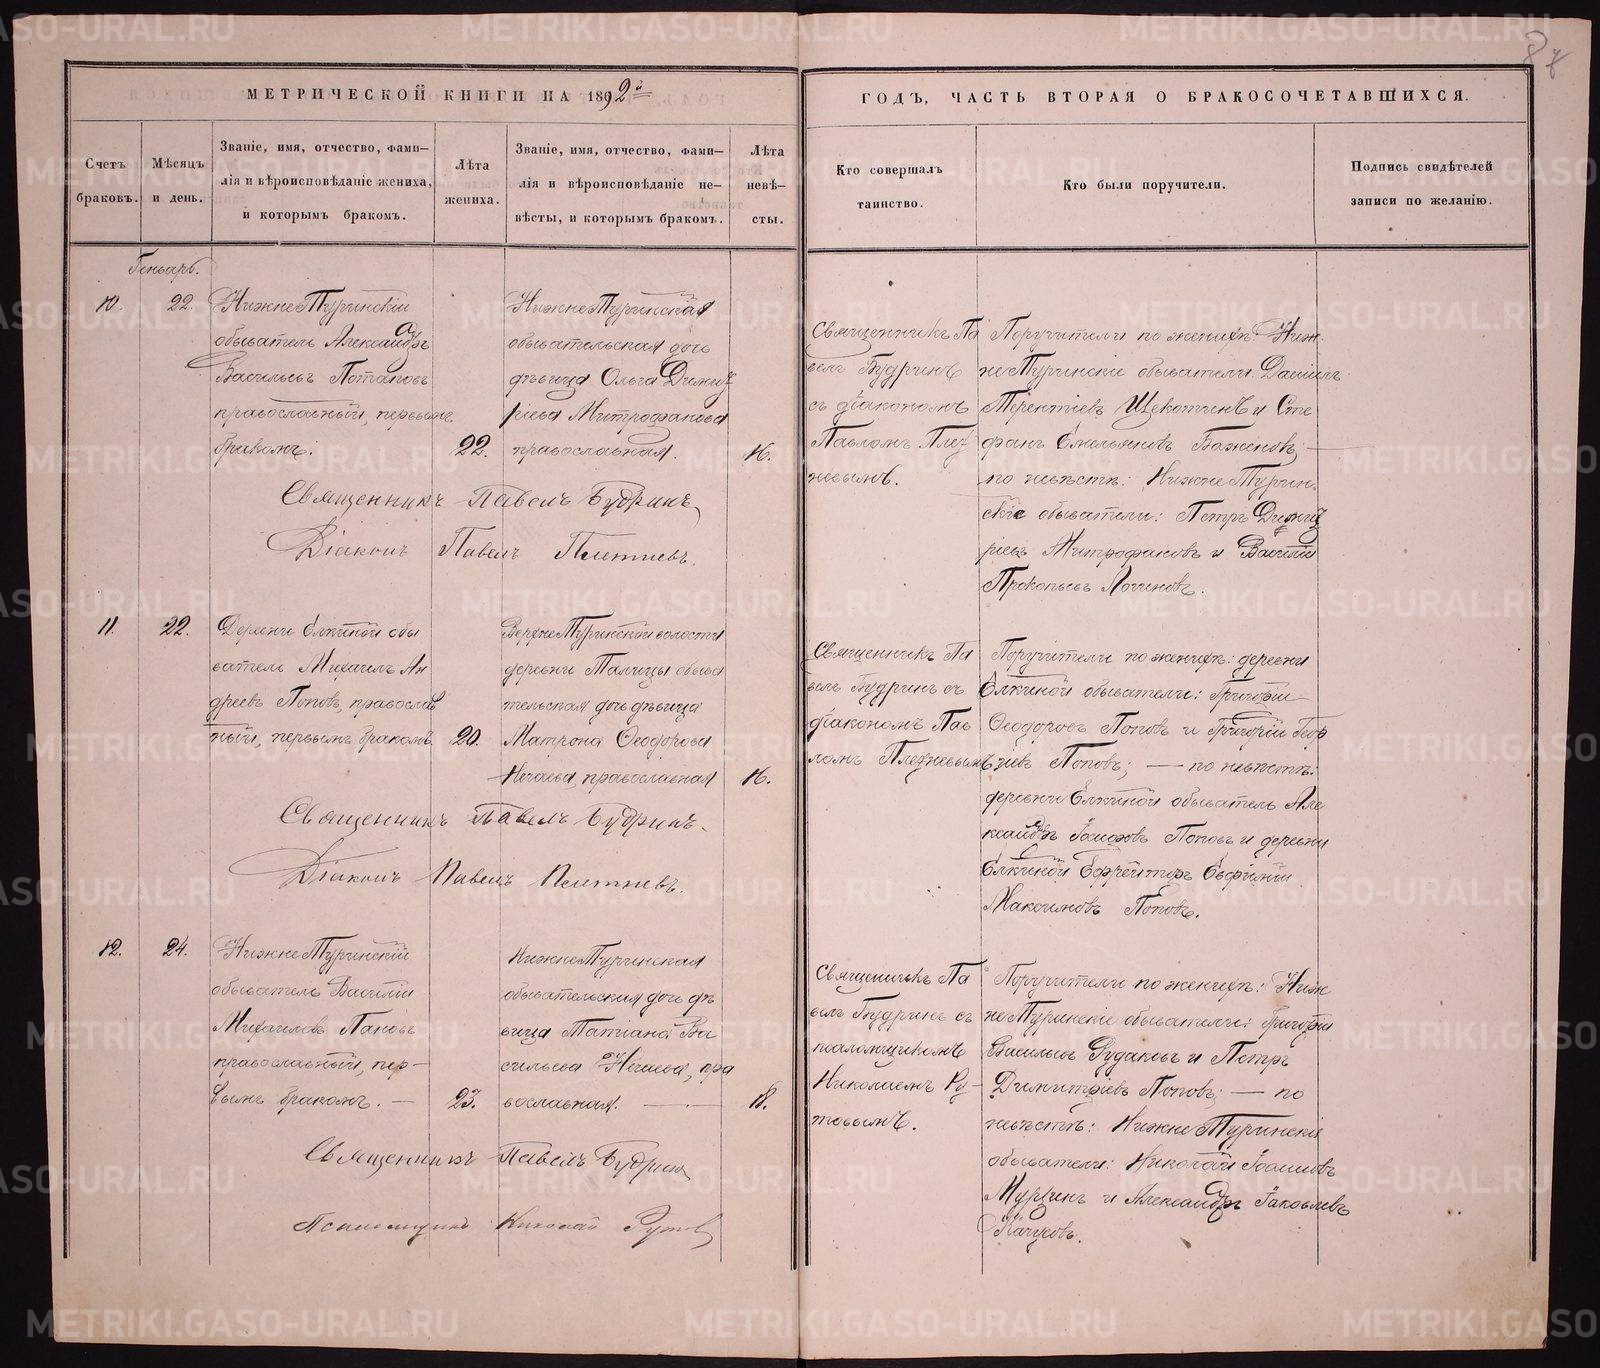 МЕТРИЧЕСКОЙ КНИГИ НА 1892й
ГОДЪ, ЧАСТЬ ВТОРАЯ О БРАКОСОЧЕТАВШИХСЯ.
Счетъ браковъ.
Мѣсяцъ и день.
Званіе, имя, отчество, фами-
лія и вѣроисповѣданіе жениха,
и которымъ бракомъ.
Лѣта
жениха.
Званіе, имя, отчество, фами-
лія и вѣроисповѣданіе не-
вѣсты, и которымъ бракомъ.
Лѣта
невѣ-
сты.
Кто совершалъ
таинство.
Кто были поручители.
Подпись свидѣтелей
записи по желанію.
Генварь.
10.
22.
НижнеТуринскій
обыватель Александръ
Васильевъ Потаповъ
православный, первыме
бракомъ.
22.
НижнеТуринская
обывательская дочь
дѣвица Ольга Димит
ріева Митрофанова
православная.
16.
Священникъ Па
велъ Будринъ
съ діакономъ
Павломъ Плет
невымъ.
Поручители по женихѣ: Ниж-
неТуринскіе обыватели Даніилъ
Терентіевъ Щекотинъ и Сте
фанъ Емельяновъ Баженовъ; —
по невѣстѣ: НижнеТурин-
скіе обыватели: Петръ Димит
ріевъ Митрофановъ и Василій
Прокопьевъ Логиновъ.
Священникъ Павелъ Будринъ
Діаконъ Павелъ Плетневъ.
11.
22.
Деревни Елкиной обы
ватель Михаилъ Ан
дреевъ Поповъ, православ
ный, первымъ бракомъ.
20.
ВерхнеТуринской волости
деревни Талицы обыва
тельская дочь дѣвица
Матрона Ѳеодорова
Нечаева, православная
16.
Священникъ Па
велъ Будринъ съ
діакономъ Пав
ломъ Плетневымъ
Поручители по женихѣ: деревни
Елкиной обыватели: Григорій
Ѳеодоровъ Поповъ и Григорій Геор
гіевъ Поповъ; — по невѣстѣ:
деревни Елкиной обыватель Але
ксандръ Іоанновъ Поповъ и деревни
Елкиной Ефрейторъ Евфимій
Максимовъ Поповъ.
Священникъ Павелъ Будринъ.
Діаконъ Павелъ Плетневъ.
12.
24.
НижнеТуринскій
обыватель Василій
Михаиловъ Пановъ
православный, пер-
вымъ бракомъ. —
23.
НижнеТуринская
обывательская дочь дѣ
вица Татіана Ва
сильева Нечаева, пра
вославная. —
18.
Священникъ Па
велъ Будринъ съ
псаломщикомъ
Николаемъ Ру-
товымъ.
Поручители по женихѣ: Ниж
неТуринскіе обыватели: Григорій
Васильевъ Рудаковъ и Петръ
Димитріевъ Поповъ; — по
невѣстѣ: НижнеТуринскіе
обыватели: Николай Іоанновъ
Мурзинъ и Александръ Іаковлевъ
Качусовъ.
Священникъ Павелъ Будринъ
Псаломщикъ Николай Рутовъ
METRIKI.GASO-URAL.RU